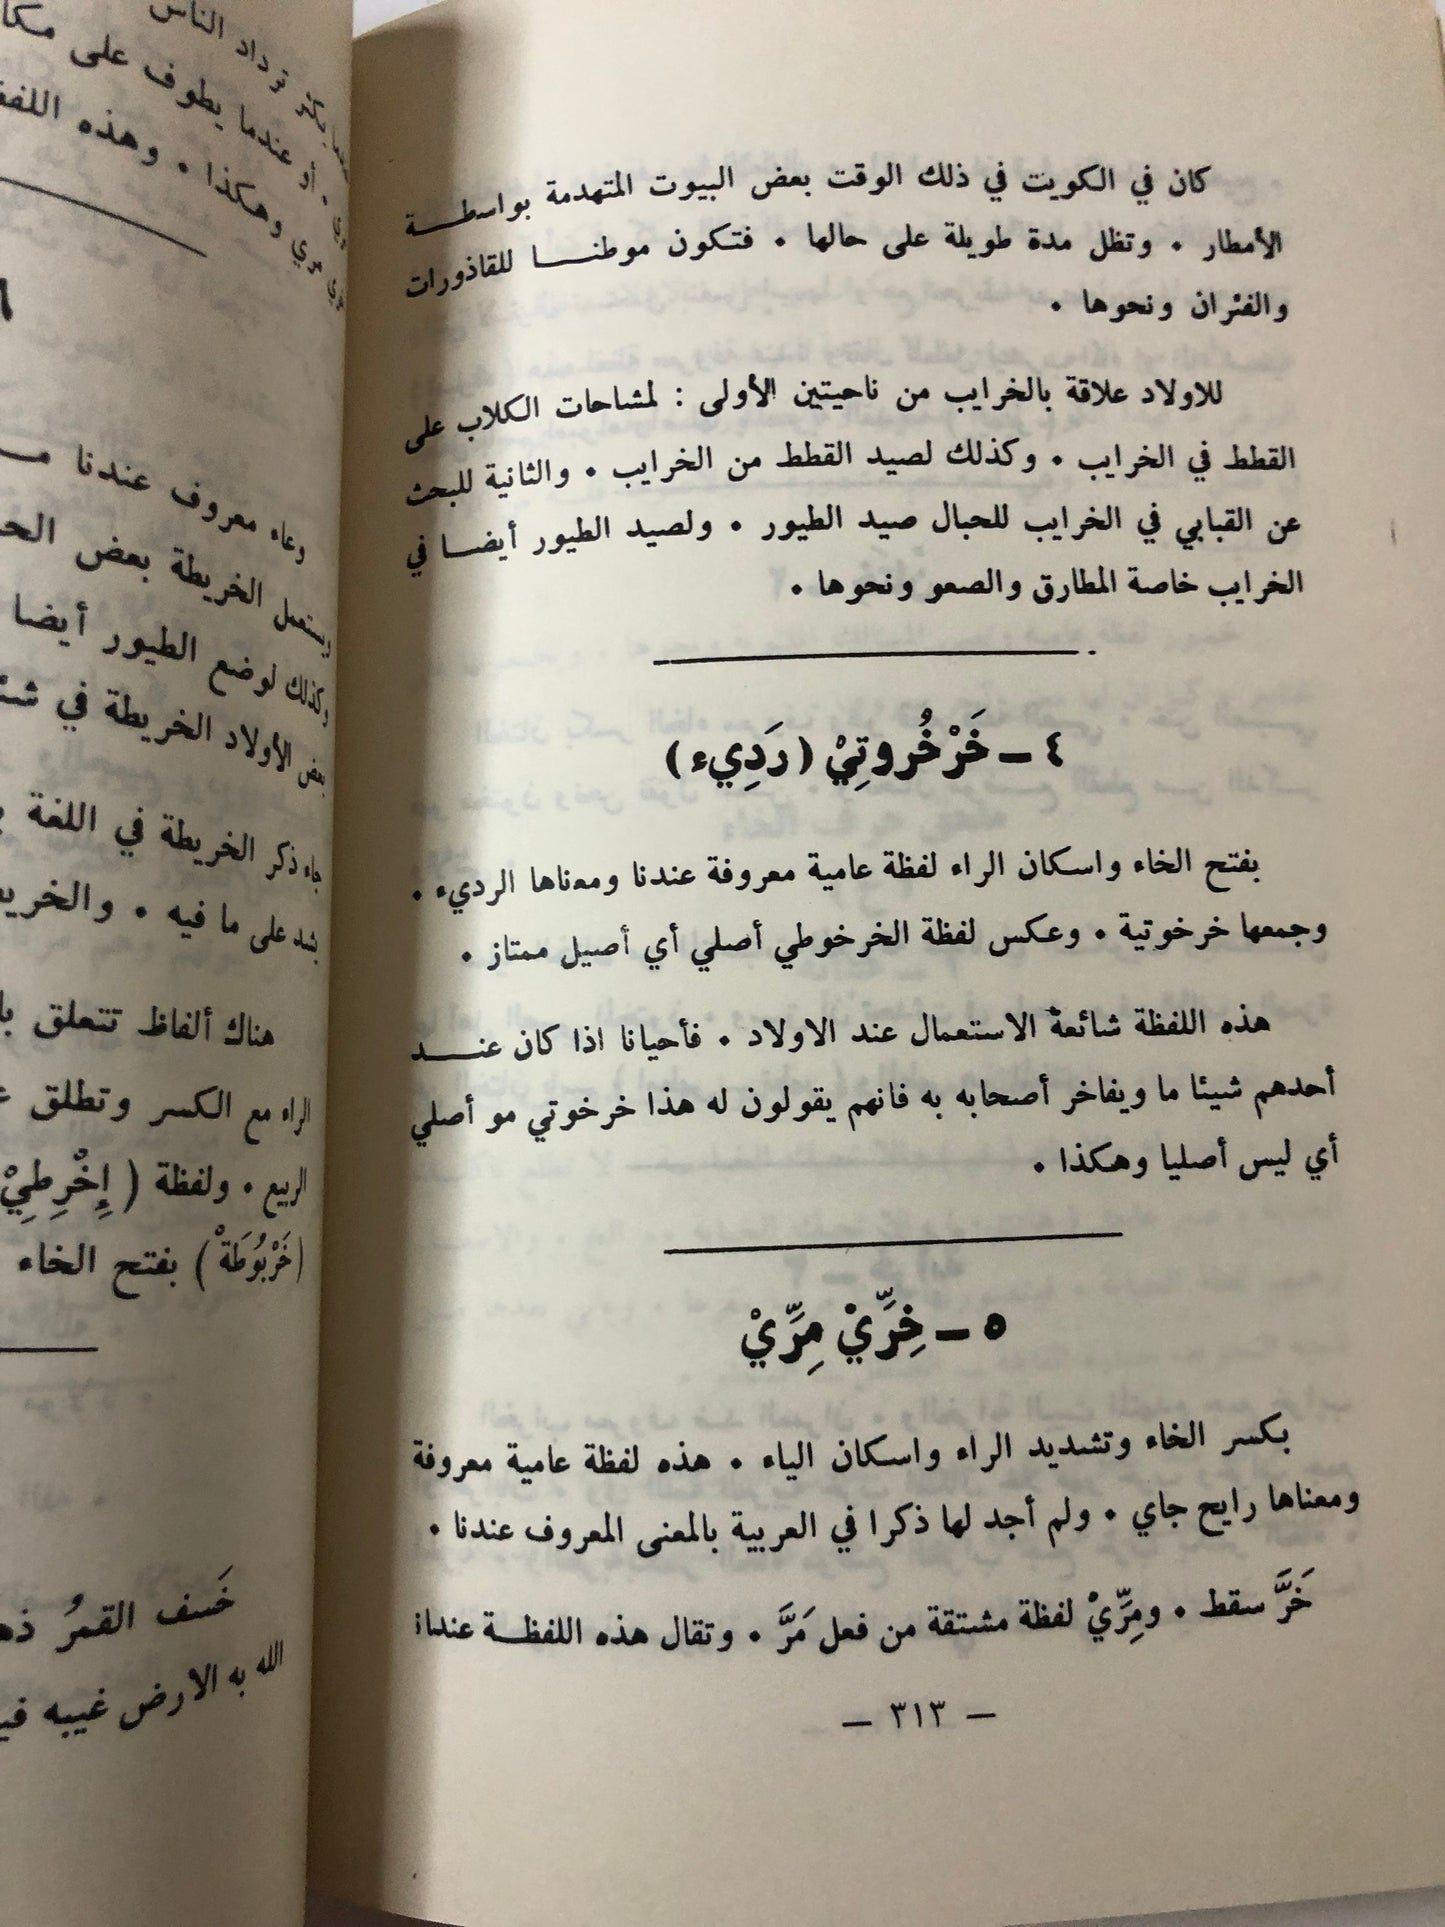 كان في الكويت في ذلك الوقت بعض البيوت المتهدمة بواسطـــة
الأمطار ٠ وتظل مدة طويلة على حالها ٠ فتكون موطنـــا للقاذورات
والفئران ونحوها ٠
للاولاد علاقة بالخرايب من ناحيتين الأولى : لمشاحات الكلاب على
القطط في الخرايب ٠ وكذلك لصيد القطط من الخرايب ٠ والثانية للبحث
عن القبابي في الخرايب للحبال صيد الطيور ٠ ولصيد الطيور أيضـــا في
الخرايب خاصة المطارق والصعو ونحوها ٠
٤ ــ خَرْخُروتِيْ (رَدِيء)
بفتح الخاء واسكان الراء لفظة عامية معروفة عندنا ومعناها الرديء ٠
وجمعها خرخوتية ٠ وعكس لفظة الخرخوطي أصلي أي أصيل ممتاز ٠
هذه اللفظة شائعة الاستعمال عند الاولاد ٠ فأحيانا اذا كان عنـــد
أحدهم شيئا ما ويفاخر أصحابه به فانهم يقولون له هذا خرخوتي مو أصلي
أي ليس أصليا وهكذا ٠
٥ ــ خِرِّيْ مِرِّيْ
بكسر الخاء وتشديد الراء واسكان الياء ٠ هذه لفظة عامية معروفة
ومعناها رايح جاي ٠ ولم أجد لها ذكرا في العربية بالمعنى المعروف عندنا ٠
خَرَّ سقط ٠ ومِرِّيْ لفظة مشتقة من فعل مَرَّ ٠ وتقال هذه اللفظـــة عندنا
ــ ٣١٣ ــ
يكثر ترداد الناس
أو عندما يطوف على
مري وهكذا ٠ وهذه
وعاء معروف عندنا
ويستعمل الخريطة بعض
وكذلك لوضع الطيور أيضا
بعض الأولاد الخريطة في
جاء ذكر الخريطة في اللغة
يشد على ما فيه ٠
هناك ألفاظ تتعلق
الراء مع الكسر وتطلق
الربيع ٠ ولفظة ( إِخْرِطِيْ
(خَرْبُوطَةْ) بفتح الخاء
خَسف القمرُ
الله به الارض غيبه